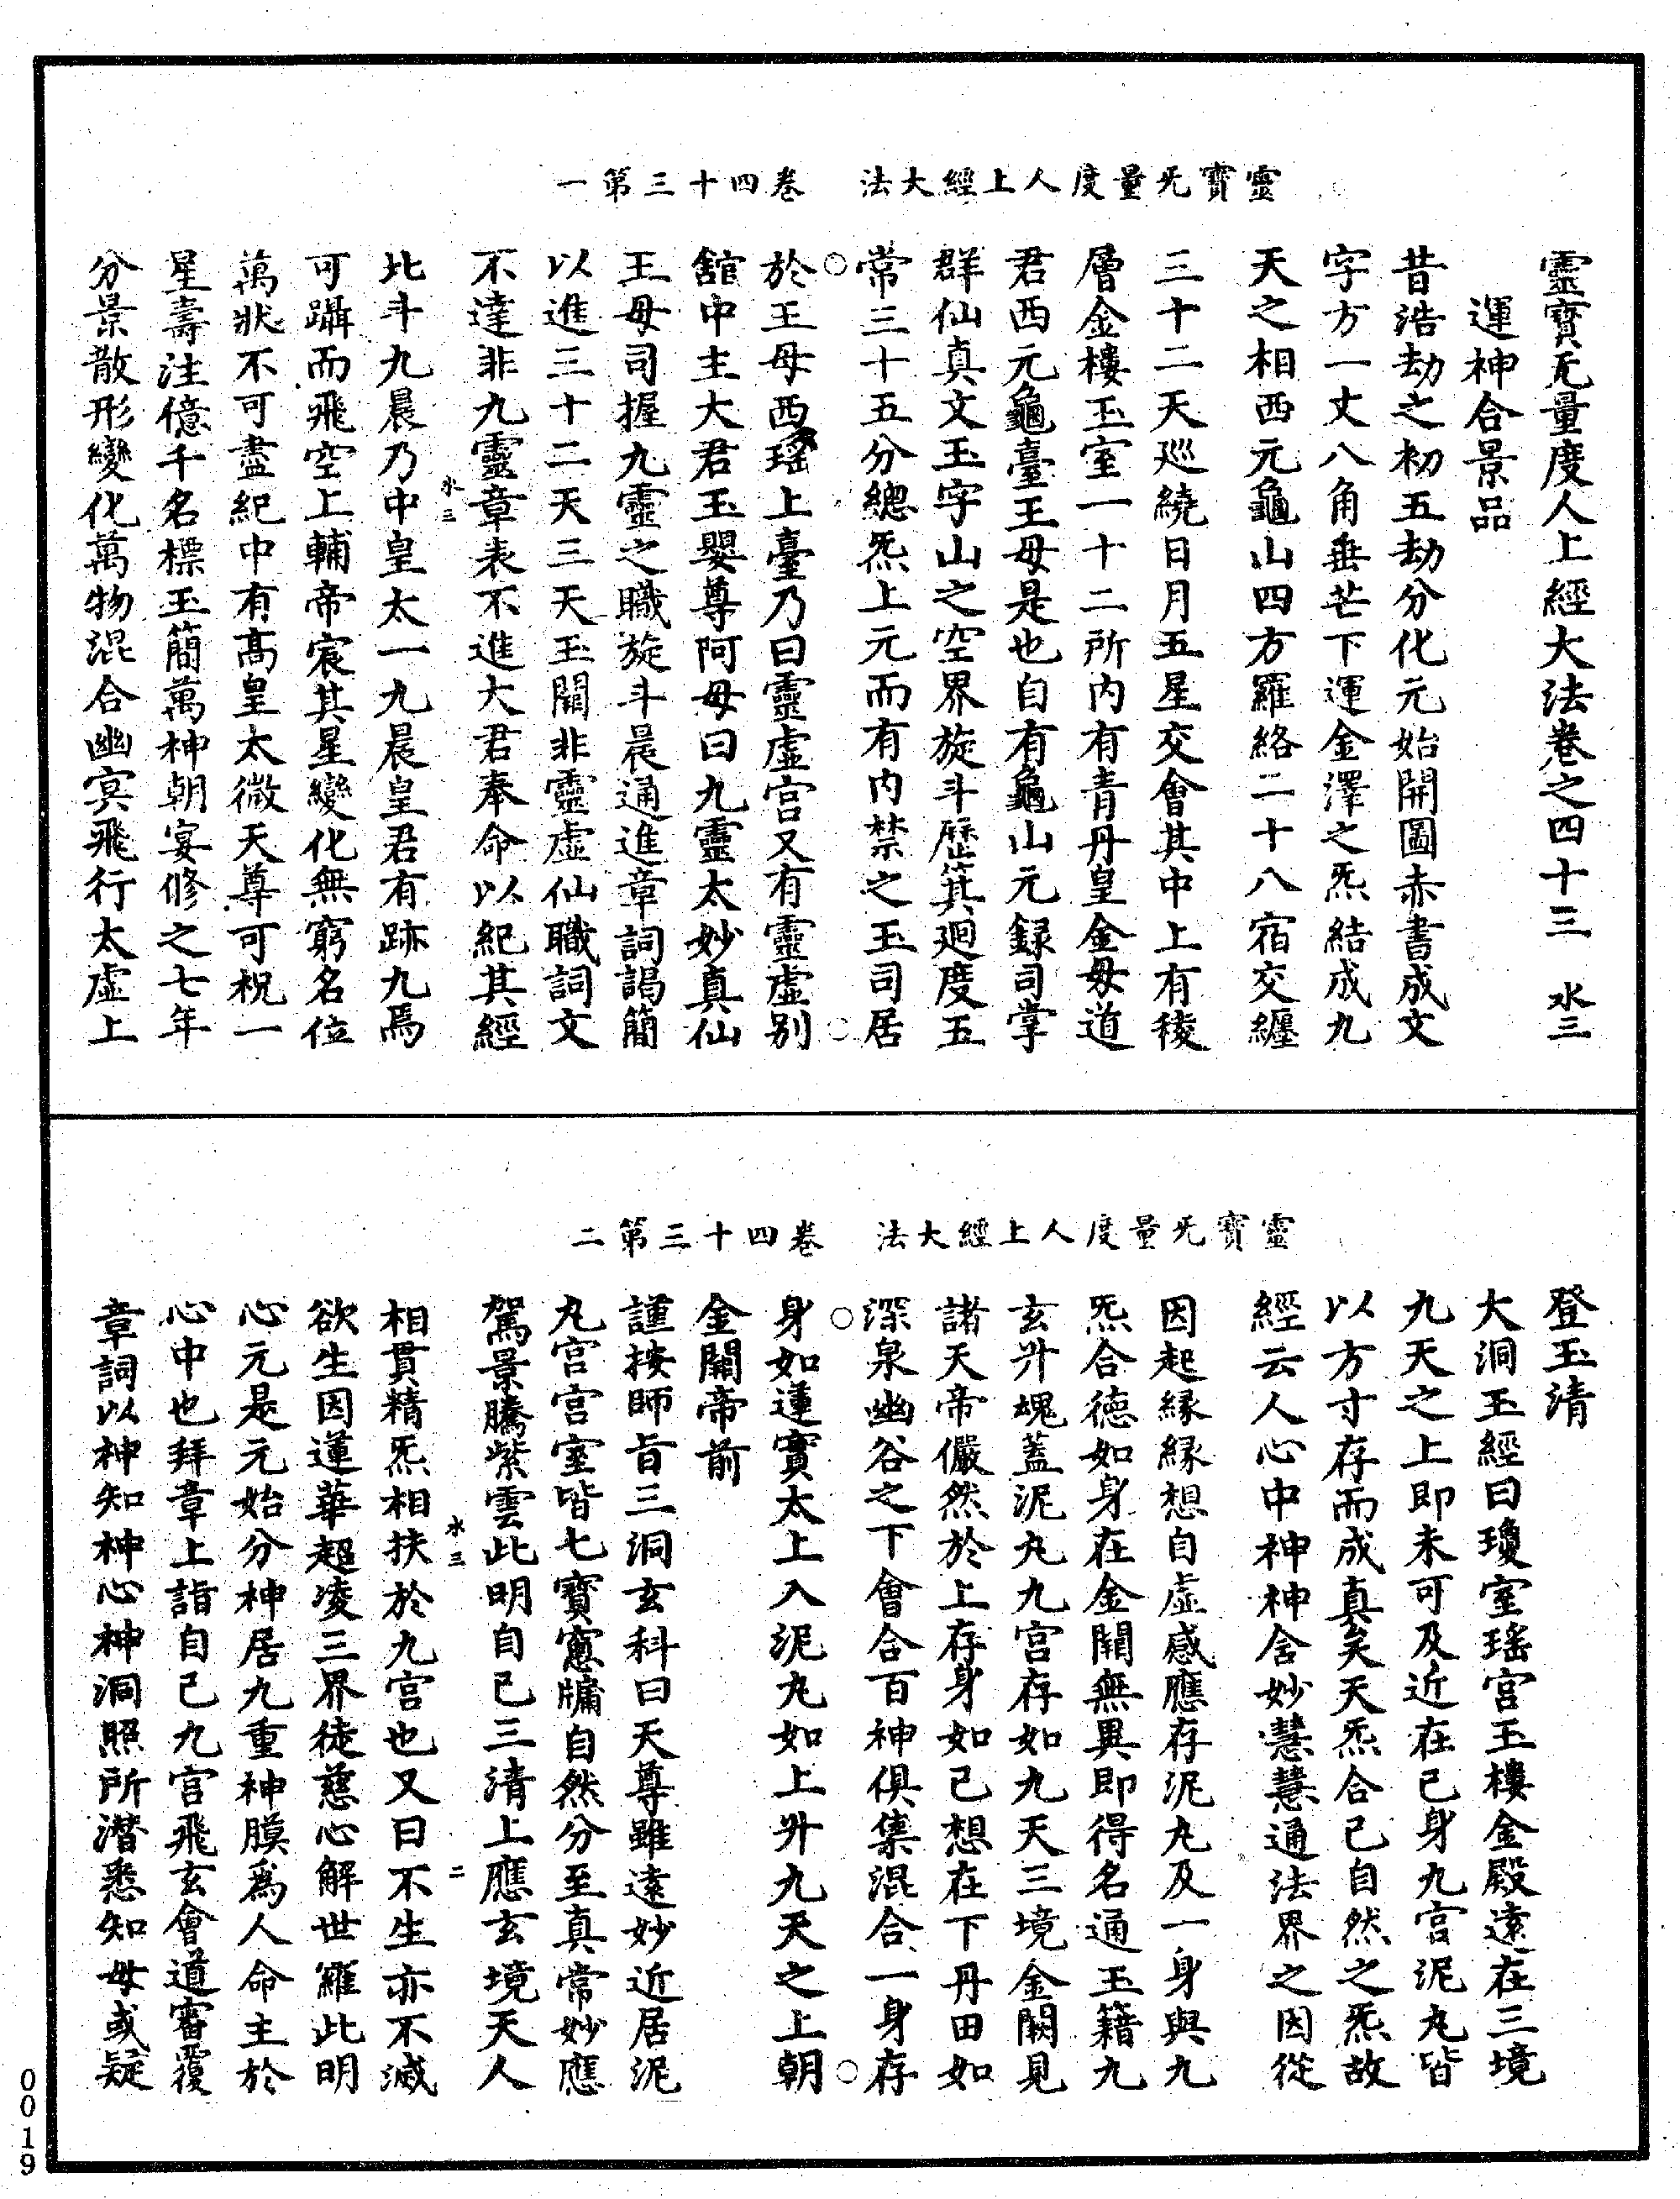 靈寶无量度人上經大法　卷四十三第一
靈寶无量度人上經大法卷之四十三　水三
運神合景品
昔浩劫之初五劫分化元始開圖赤書成文
字方一丈八角垂芒下運金澤之炁結成九
天之相西元龜山四方羅絡二十八宿交纏
三十二天巡繞日月五星交會其中上有稜
層金樓玉室一十二所内有青丹皇金母道
君西元龜臺王母是也自有龜山元録司掌
群仙真文玉字山之空界旋斗歷箕迴度五
常三十五分總炁上元而有内禁之玉司居
於王母西瑤上臺乃曰靈虚宫又有靈虚别
舘中主大君玉嬰尊阿母曰九靈太妙真仙
王母司握九靈之職旋斗晨通進章詞謁簡
以進三十二天三天玉闕非靈虚仙職詞文
不達非九靈章表不進大君奉命以紀其經
水三
北斗九晨乃中皇太一九晨皇君有跡九焉
可躡而飛空上輔帝宸其星變化無窮名位
萬狀不可盡紀中有髙皇太微天尊可柷一
星壽注億千名標玉簡萬神朝宴修之七年
分景散形變化萬物混合幽冥飛行太虚上
靈寶无量度人上經大法　卷四十三第二
登玉清
大洞玉經曰瓊室瑤宫玉樓金殿遠在三境
九天之上即未可及近在己身九宫泥丸皆
以方寸存而成真矣天炁合己自然之炁故
經云人心中神神舍妙慧慧通法界之因從
因起縁縁想自虚感應存泥丸及一身與九
炁合德如身在金闕無異即得名通玉籍九
玄升魂蓋泥丸九宫存如九天三境金闕見
諸天帝儼然於上存身如己想在下丹田如
深泉幽谷之下會合百神俱集混合一身存
身如蓮實太上入泥丸如上升九天之上朝
金闕帝前
謹按師旨三洞玄科曰天尊雖遠妙近居泥
丸宫宫室皆七寶窻牗自然分至真常妙應
駕景騰紫雲此明自己三清上應玄境天人
水三　二
相貫精炁相扶於九宫也又曰不生亦不滅
欲生因蓮華超凌三界徒慈心解世羅此明
心元是元始分神居九重神膜爲人命主於
心中也拜章上詣自己九宫飛玄會道審覆
章詞以神知神心神洞照所潜悉知毋或疑
0019